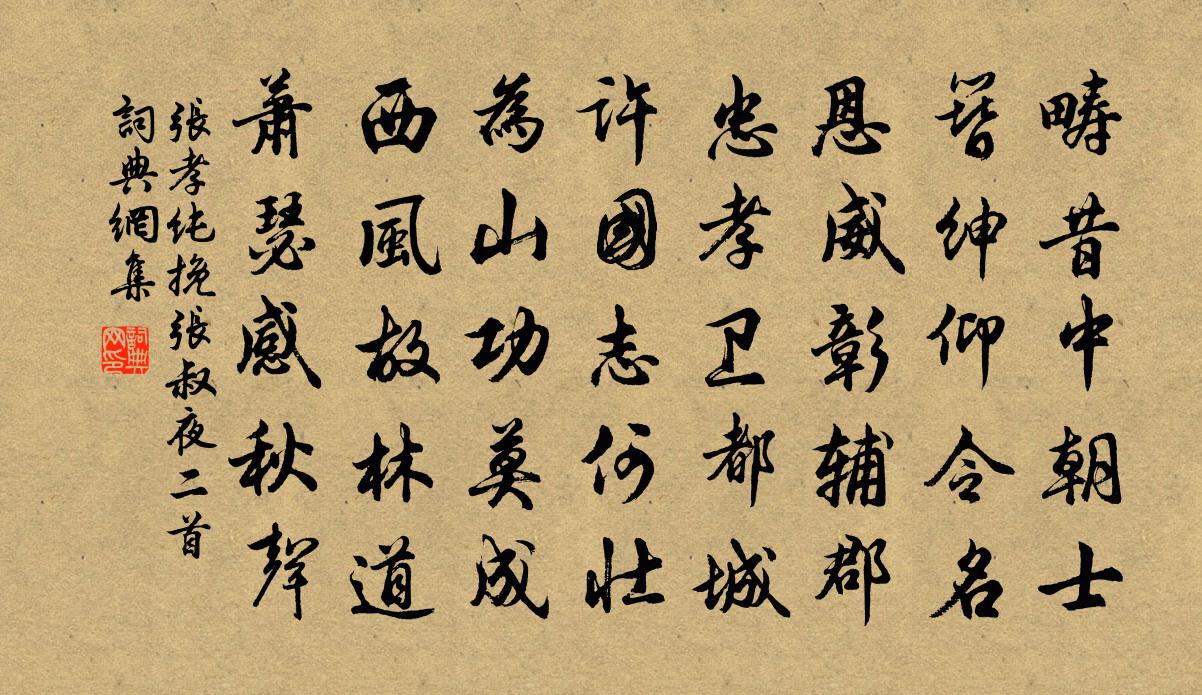 疇昔中朝士
簪紳仰令名
恩威彰辅郡
忠孝卫都城
許國志何壯
為山功莫成
西風故林道
蕭瑟感秋聲
張孝純挽張叔夜二首
詞典網集
詞典网印